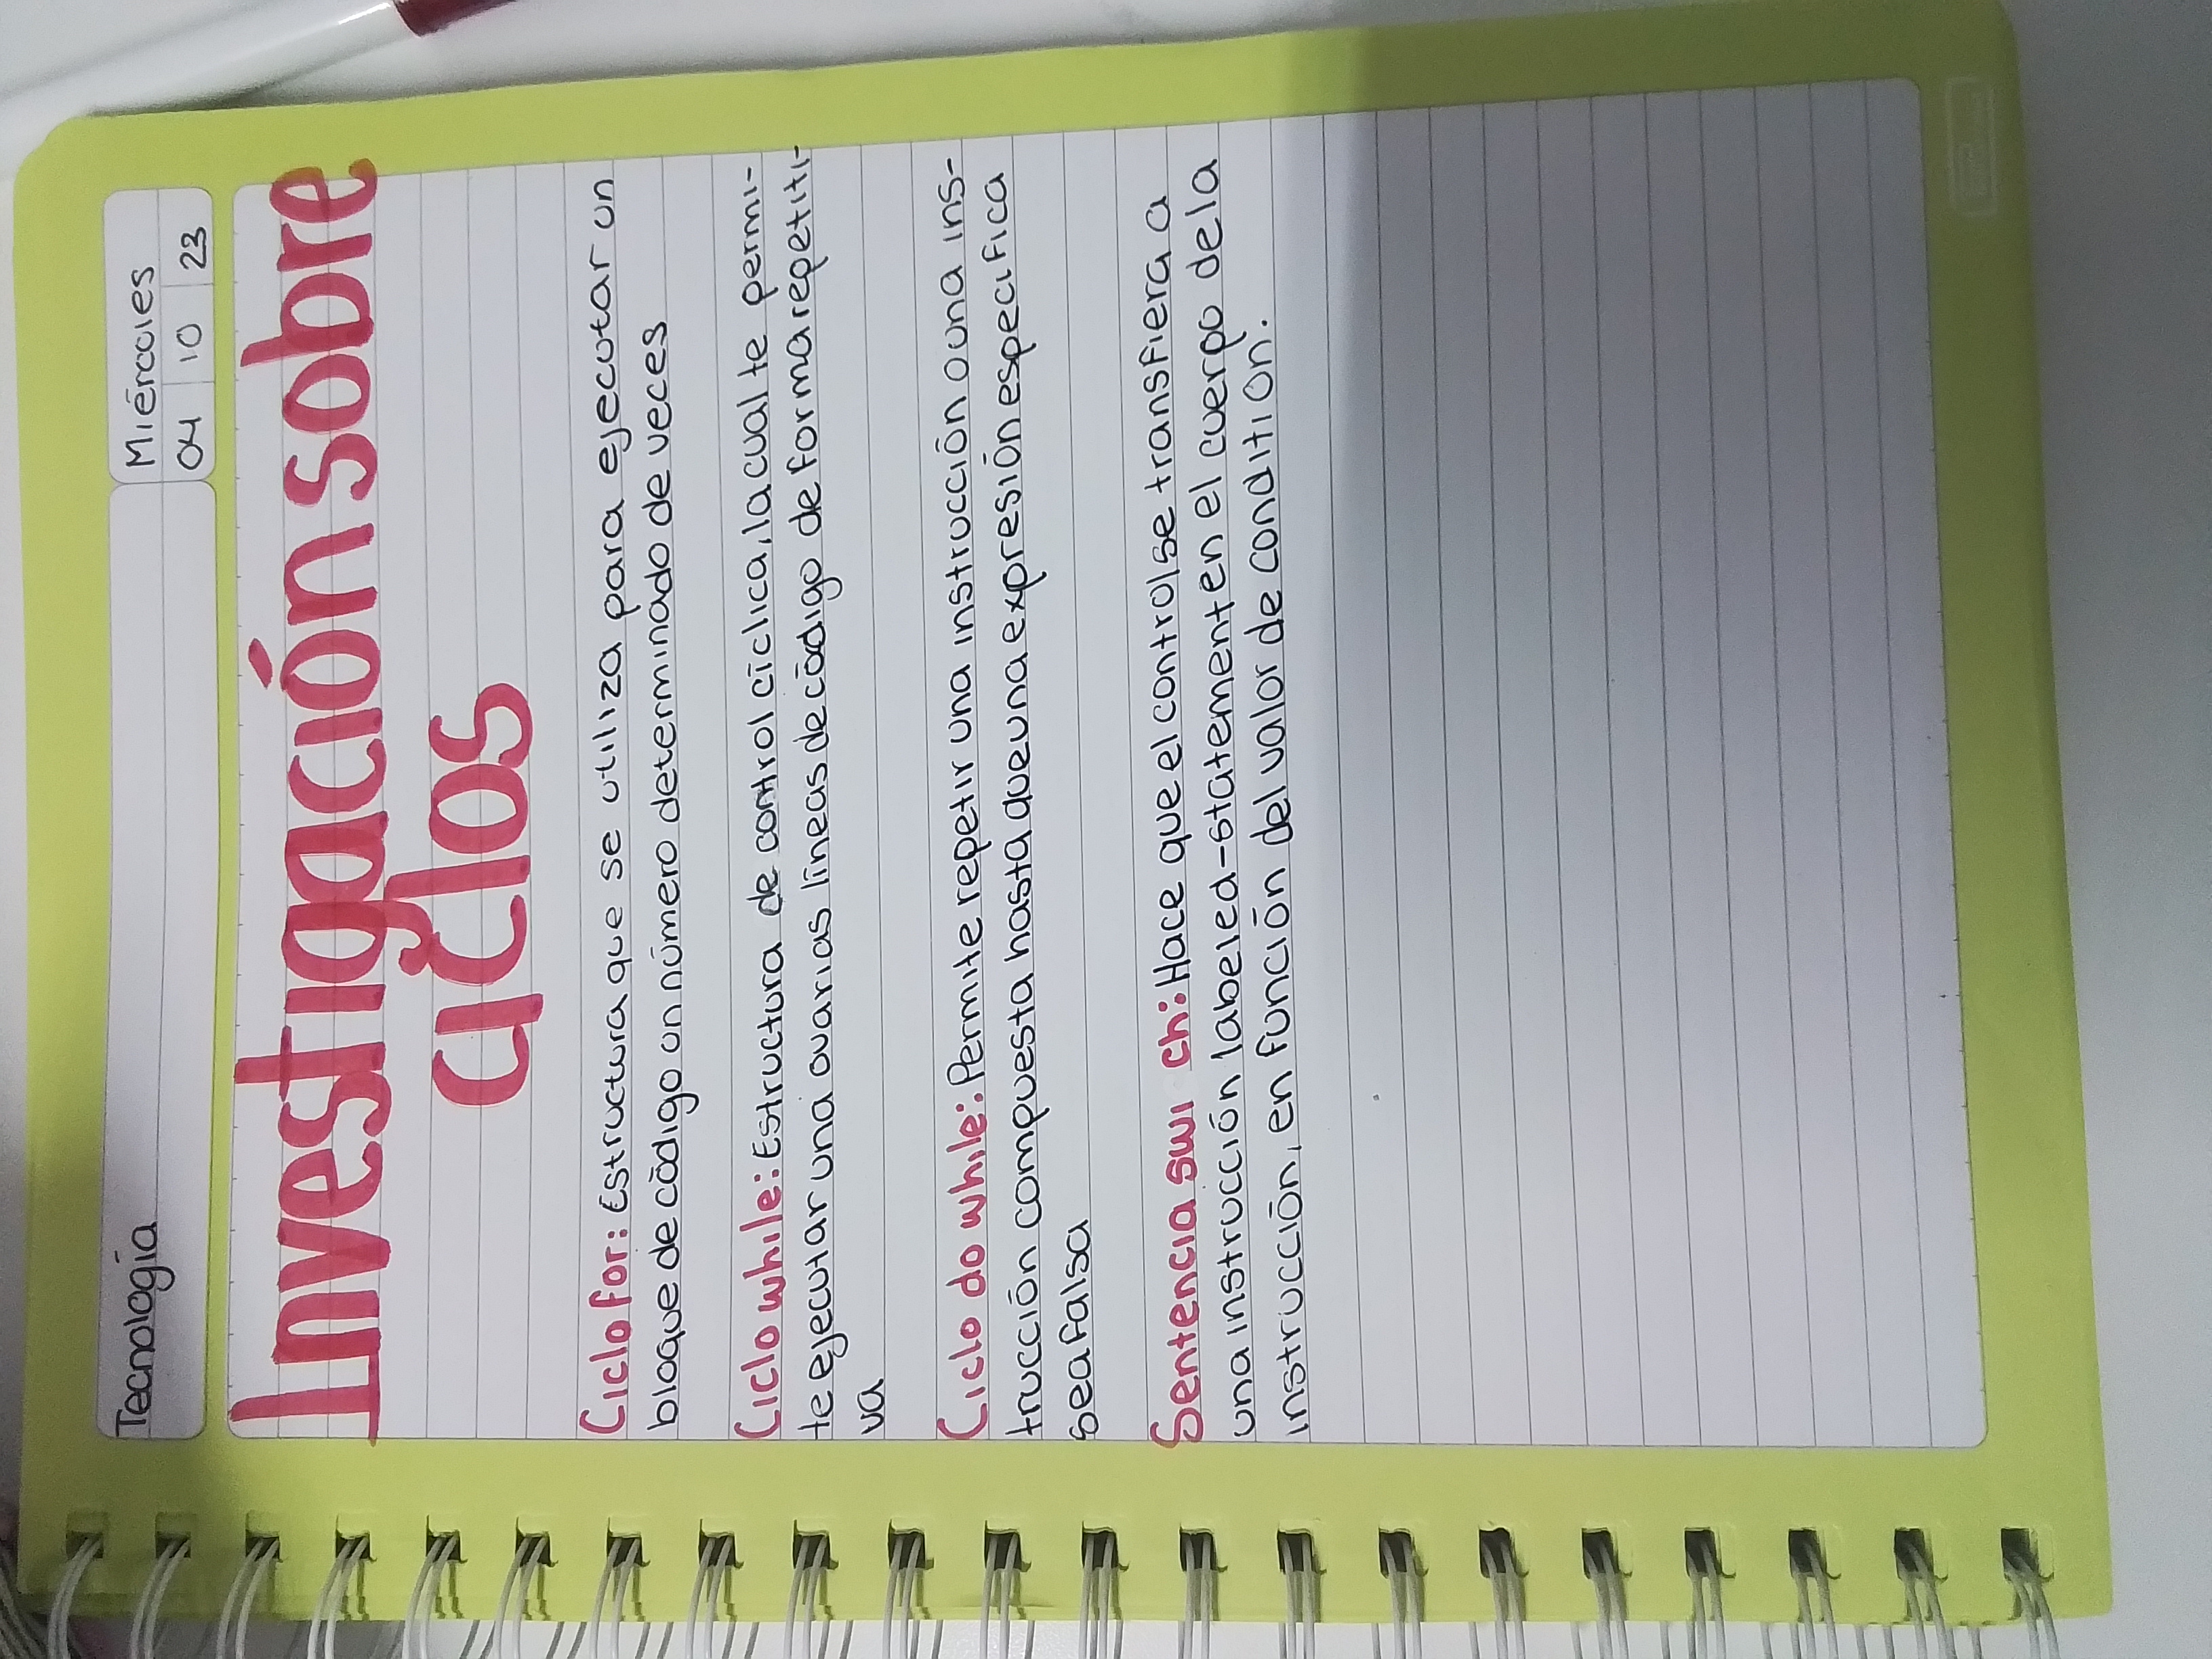 Tecnología
Miércoles
04 10 23
Investigación sobre
ciclos
Ciclo for: Estructura que se utiliza para ejecutar un
bloque de código un número determinado de veces
Ciclo while: Estructura de control cíclica, la cual te permi-
te ejecutar una o varias líneas de código de forma repetiti-
va
Ciclo do while: Permite repetir una instrucción o una ins-
trucción compuesta hasta que una expresión especifica
sea falsa
Sentencia swi ch: Hace que el control se transfiera a
una instrucción labeled-statement en el cuerpo de la
instrucción, en función del valor de condition.